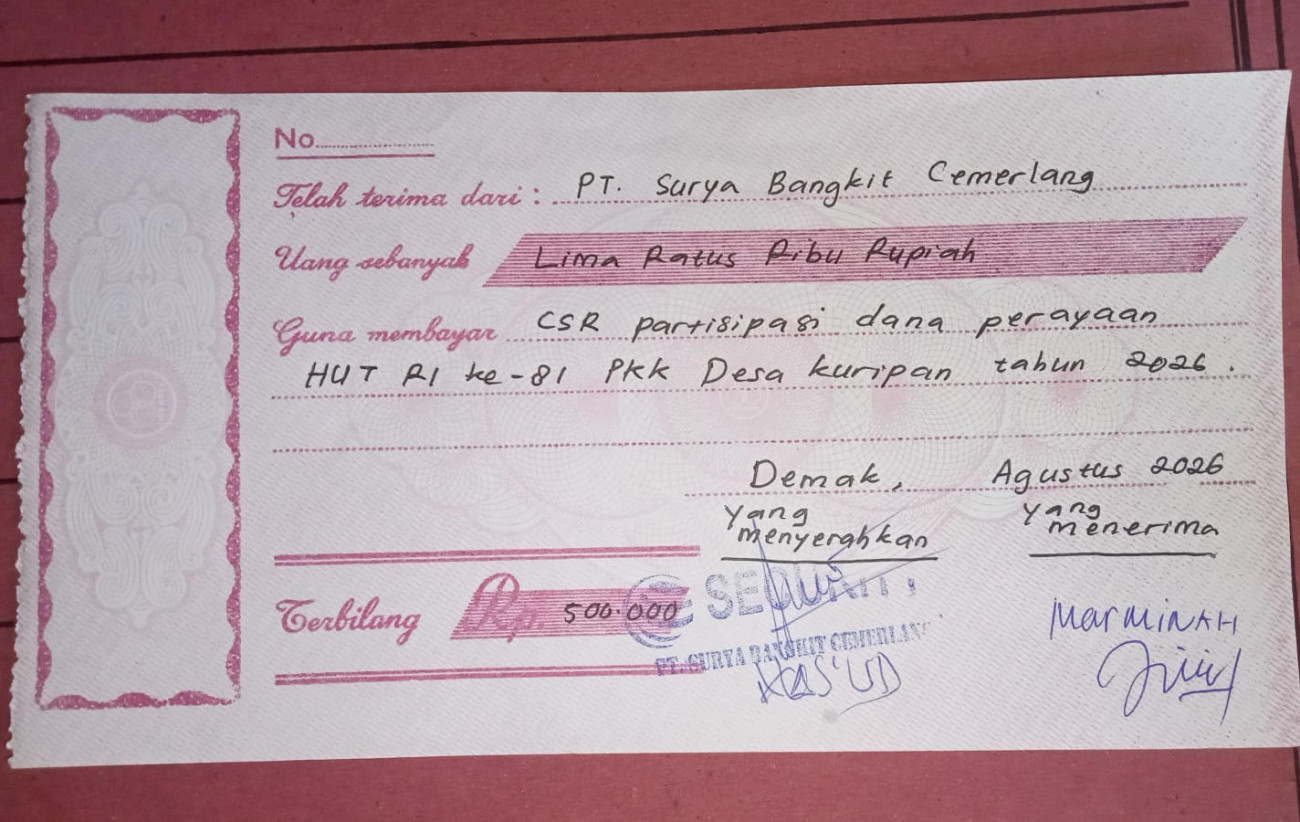 No..................
Telah terima dari : PT. Surya Bangkit Cemerlang
Uang sebanyak Lima Ratus Ribu Rupiah
Guna membayar CSR partisipasi dana perayaan
HUT RI ke-81 PKK Desa Kuripan tahun 2026.
Demak, Agustus 2026
Yang menyerahkan
Yang menerima
Terbilang Rp. 500.000
SECURITY
PT. SURYA BANGKIT CEMERLANG
MAS'UD
MARMINAH